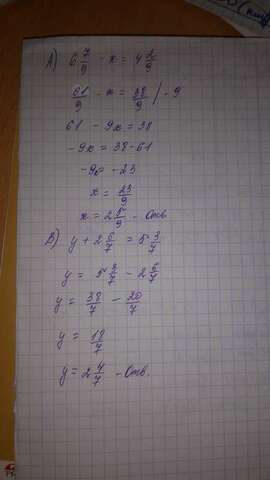 А) 6 7/9 - x = 4 2/9
61/9 - x = 38/9 / · 9
61 - 9x = 38
-9x = 38-61
-9x = -23
x = 23/9
x = 2 5/9 - Отв
В) y + 2 6/7 = 5 3/7
y = 5 3/7 - 2 6/7
y = 38/7 - 20/7
y = 18/7
y = 2 4/7 - Отв.